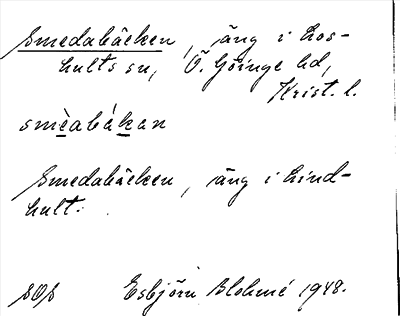 Smedabäcken, äng i Los-
hults sn, Ö. Göinge hd,
Krist. l.
smèabákan
Smedabäcken, äng i Lind-
hult.
SOS Esbjörn Blohmé 1948.